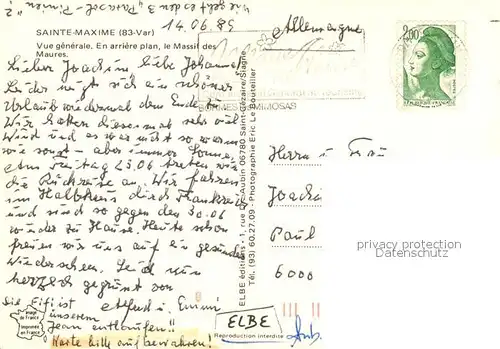 Wie geht es den 3 "Parasol-Pinien"?
14.06.89
SAINTE-MAXIME (83-Var)
Vue générale. En arrière plan, le Massif des
Maures.
Allemagne
2,00
Lieber Joachim, liebe Johanna!
Leider neigt sich ein schöner
Urlaub wiedermal dem Ende zu.
Wir hatten diesesmal sehr viel
Wind und es war nicht so warm
wie sonst - aber immer Sonne.
Am Freitag 23.06 treten wir
die Rückreise an. Wir fahren
im Halbkreis durch Frankreich
und sind so gegen den 30.06
wieder zu Hause. Heute schon
freuen wir uns auf ein gesundes
Wiedersehen. Seid nun
herzlich gegrüsst von
Alfred u.
Die Fifi ist
unserem
Jean entlaufen!!
Karte bitte aufbewahren!
BORMES MIMOSAS
ELBE éditions - 1, rue Pic-Aubin 06780 Saint-Cézaire/Siagne
Tél. (93) 60.27.09 - Photographie Eric Le Bouteiller
Herrn u. Frau
Joachim
Paul
6000
privacy protection
Datenschutz
Image
de France
Imprimée
en France
ELBE
Reproduction interdite